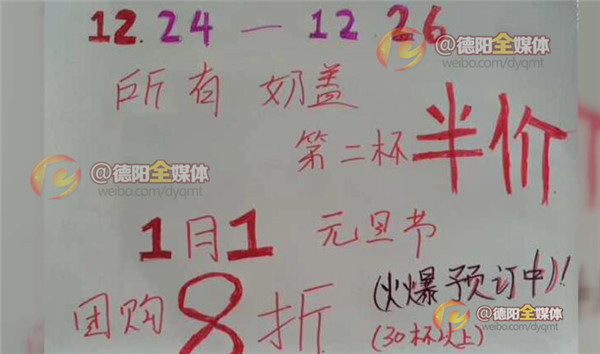 12.24 — 12.26
@德阳全媒体
weibo.com/dyqmt
所有 奶盖
第二杯 半价
@德阳全媒体
weibo.com/dyqmt
1月1 元旦节
团购 8折 (火爆预订中)!
(30杯以上)
@德阳全媒体
weibo.com/dyqmt